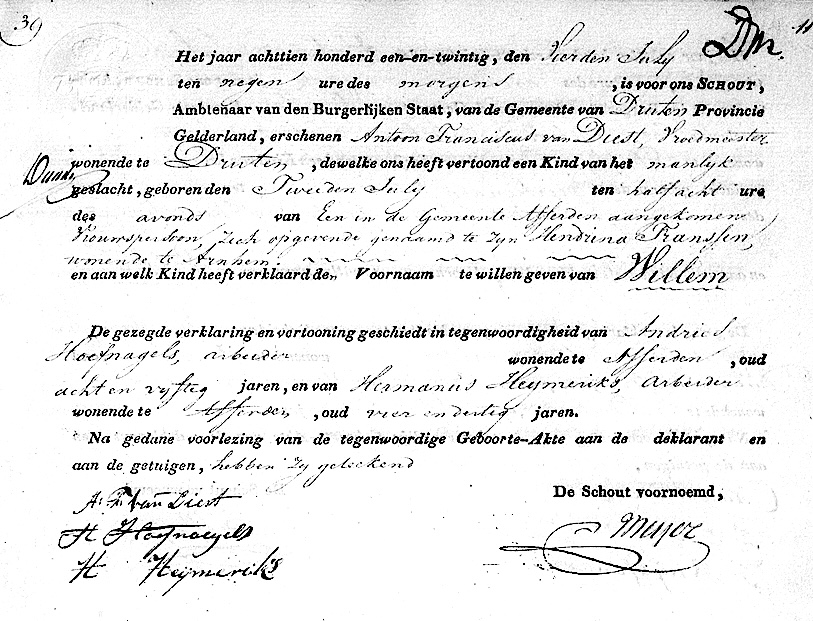 39
Dm.
11
Het jaar achttien honderd een-en-twintig, den Vierden July
ten negen ure des morgens, is voor ons SCHOUT,
Ambtenaar van den Burgerlijken Staat, van de Gemeente van Druten Provincie
Gelderland, erschenen Antoon Franciscus van Diest, Vroedmeester
wonende te Druten, dewelke ons heeft vertoond een Kind van het manlyk
geslacht, geboren den Tweeden July ten half acht ure
des avonds van Een in de Gemeente Afferden aangekomen
Vrouwspersoon, zich opgevende genaamd te zyn Hendrina Franssen,
wonende te Arnhem.
en aan welk Kind heeft verklaard den Voornaam te willen geven van Willem
De gezegde verklaring en vertooning geschiedt in tegenwoordigheid van Andries
Hoefnagels, arbeider wonende te Afferden, oud
acht en vyftig jaren, en van Hermanus Heymeriks, arbeider
wonende te Afferden, oud vier en dertig jaren.
Na gedane voorlezing van de tegenwoordige Geboorte-Akte aan de deklarant en
aan de getuigen, hebben zy geteekend
De Schout voornoemd,
A. F. van Diest
H Hoefnaegels
H Heymeriks